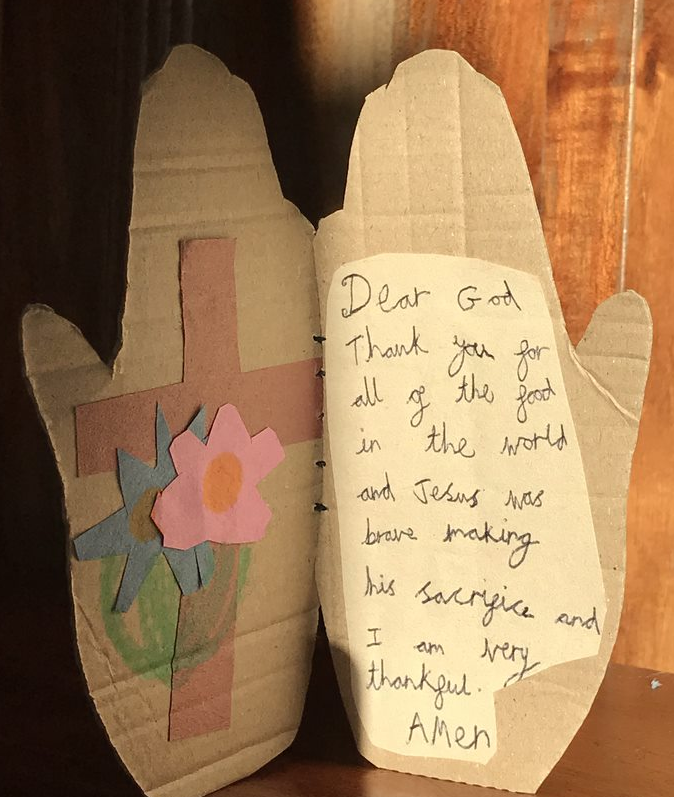 Dear God
Thank you for
all of the food
in the world
and Jesus was
brave making
his sacrifice and
I am very
thankful.
AMen